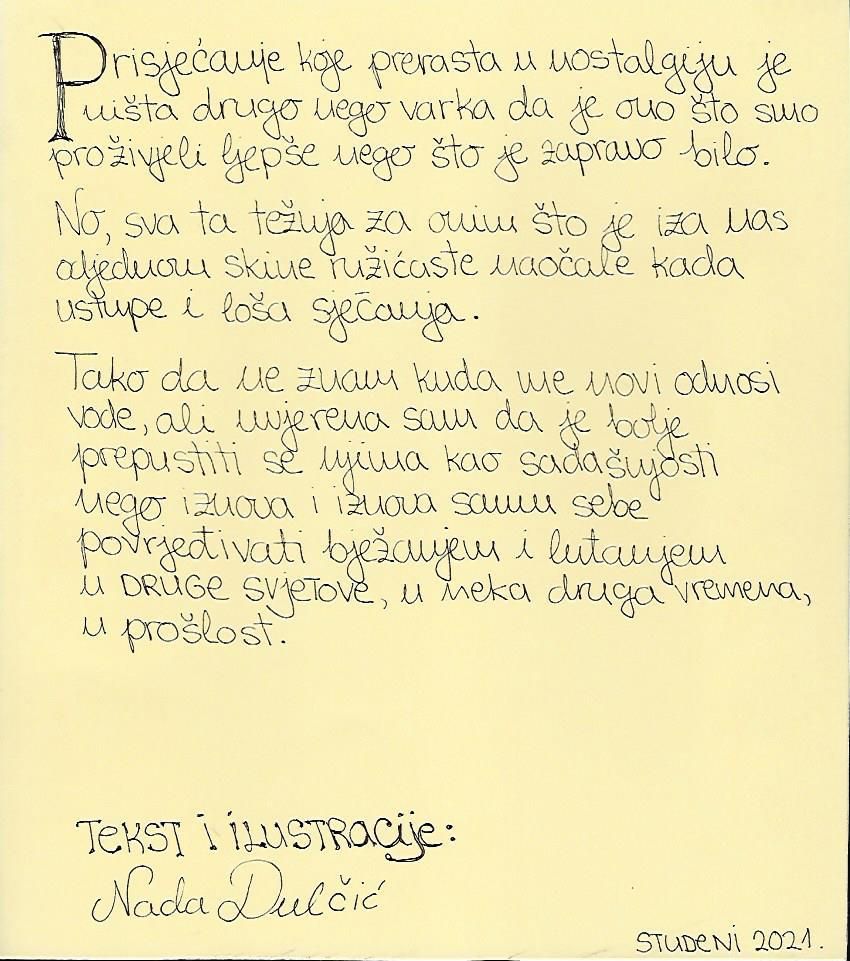 Prisjećanje koje prerasta u nostalgiju je
ništa drugo nego varka da je ono što smo
proživjeli ljepše nego što je zapravo bilo.
No, sva ta težnja za onim što je iza nas
odjednom skine ružičaste naočale kada
ustupe i loša sjećanja.
Tako da ne znam kuda me novi odnosi
vode, ali uvjerena sam da je bolje
prepustiti se njima kao sadašnjosti
nego iznova i iznova samu sebe
povrjeđivati bježanjem i lutanjem
u DRUGE SVJETOVE, u neka druga vremena,
u prošlost.
TEKST i iLUSTRACije:
Nada Dulčić
STUDENI 2021.